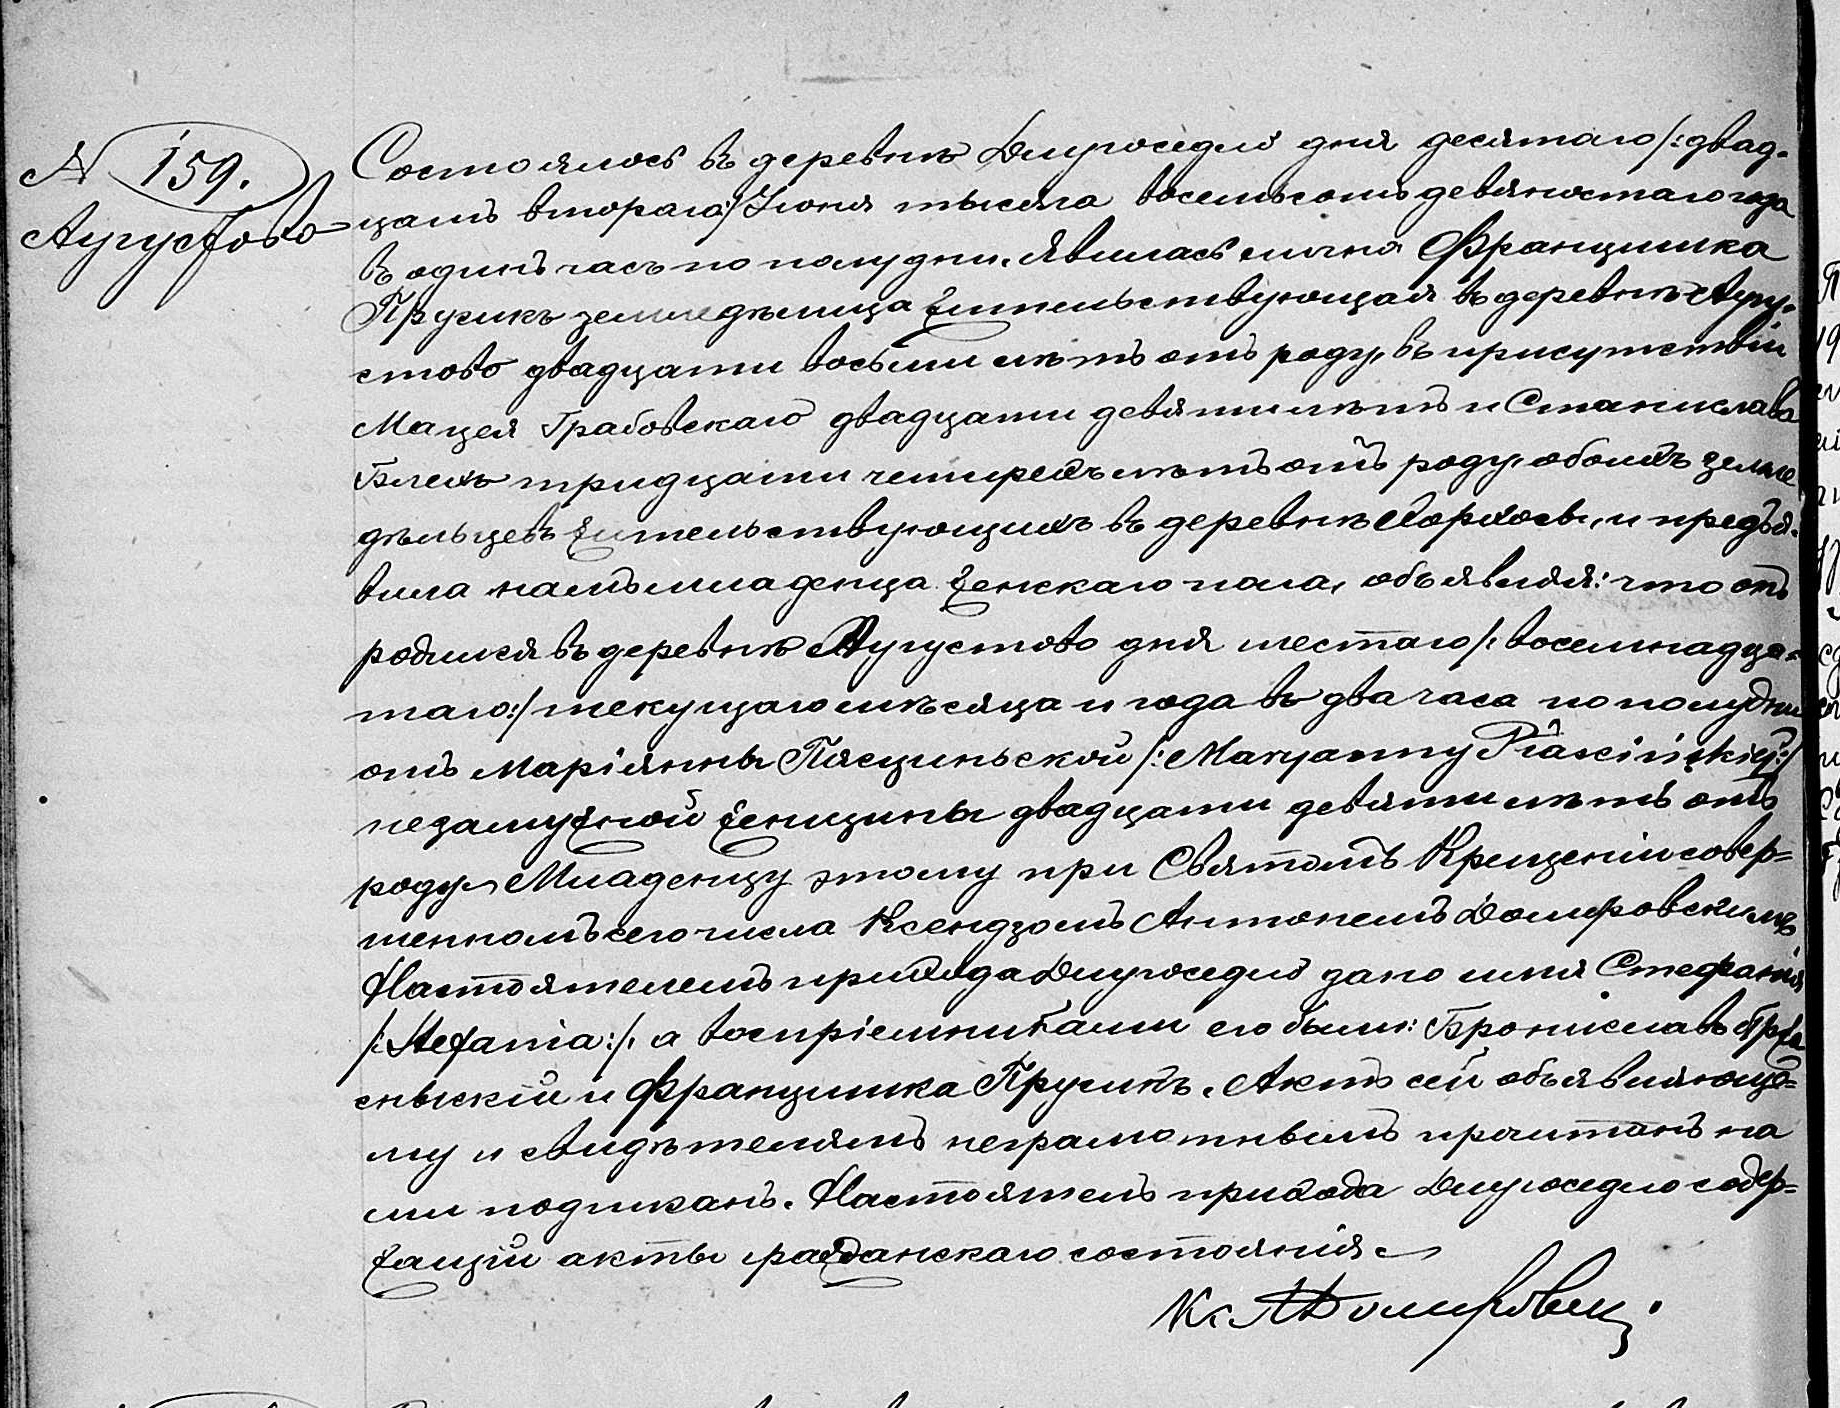 N 159.
Аугустово
Состоялось въ деревнѣ Длугоседло дня десятаго /: двад-
цать втораго:/ Іюня тысяча восемьсотъ девяностаго года
въ одинъ часъ по полудни. Явилась лично Францишка
Прусикъ земледѣлица жительствующая въ деревнѣ Аугу-
стово двадцати восьми лѣтъ отъ роду, въ присутствіи
Мацея Грабовскаго двадцати девяти лѣтъ и Станислава
Блехъ тридцати четырехъ лѣтъ отъ роду, обоихъ земле
дѣльцевъ жительствующихъ въ деревнѣ и предъя-
вила намъ младенца женскаго пола, объявляя: что онъ
родился въ деревнѣ Аугустово дня шестаго /: восемнадца-
таго:/ текущаго мѣсяца и года въ два часа по полудни
отъ Маріянны Пясциньской /: Maryanny Piaścińskiéj:/
незамужной женщины двадцати девяти лѣтъ отъ
роду. Младенцу этому при Святомъ Крещеніи совер-
шенномъ сего числа Ксендзомъ Антонемъ Домбровскимъ
Настоятелемъ прихода Длугоседло дано имя Стефанія
/: Stefania:/, а воспріемниками его были: Брониславъ
сньскій и Францишка Прусикъ. Актъ сей объявляюще-
му и свидѣтелямъ неграмотнымъ прочитанъ на
ми подписанъ. Настоятель прихода Длугоседло содер-
жащій акты гражданскаго состоянія.
К. А Домбровски.